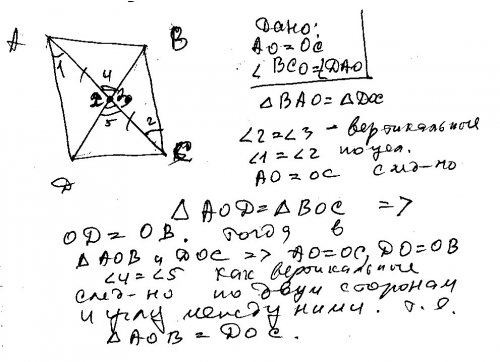 A
B
1
4
2
3
5
2
D
C
Дано:
AO=OC
∠BCO=∠DAO
△BAO=△DOC
∠2=∠3 - вертикальные
∠1=∠2 по усл.
AO=OC след-но
△AOD=△BOC =>
OD=OB. Тогда в
△AOB и DOC => AO=OC, DO=OB
∠4=∠5 как вертикальные
след-но по двум сторонам
и углу между ними. т.е.
△AOB=DOC.